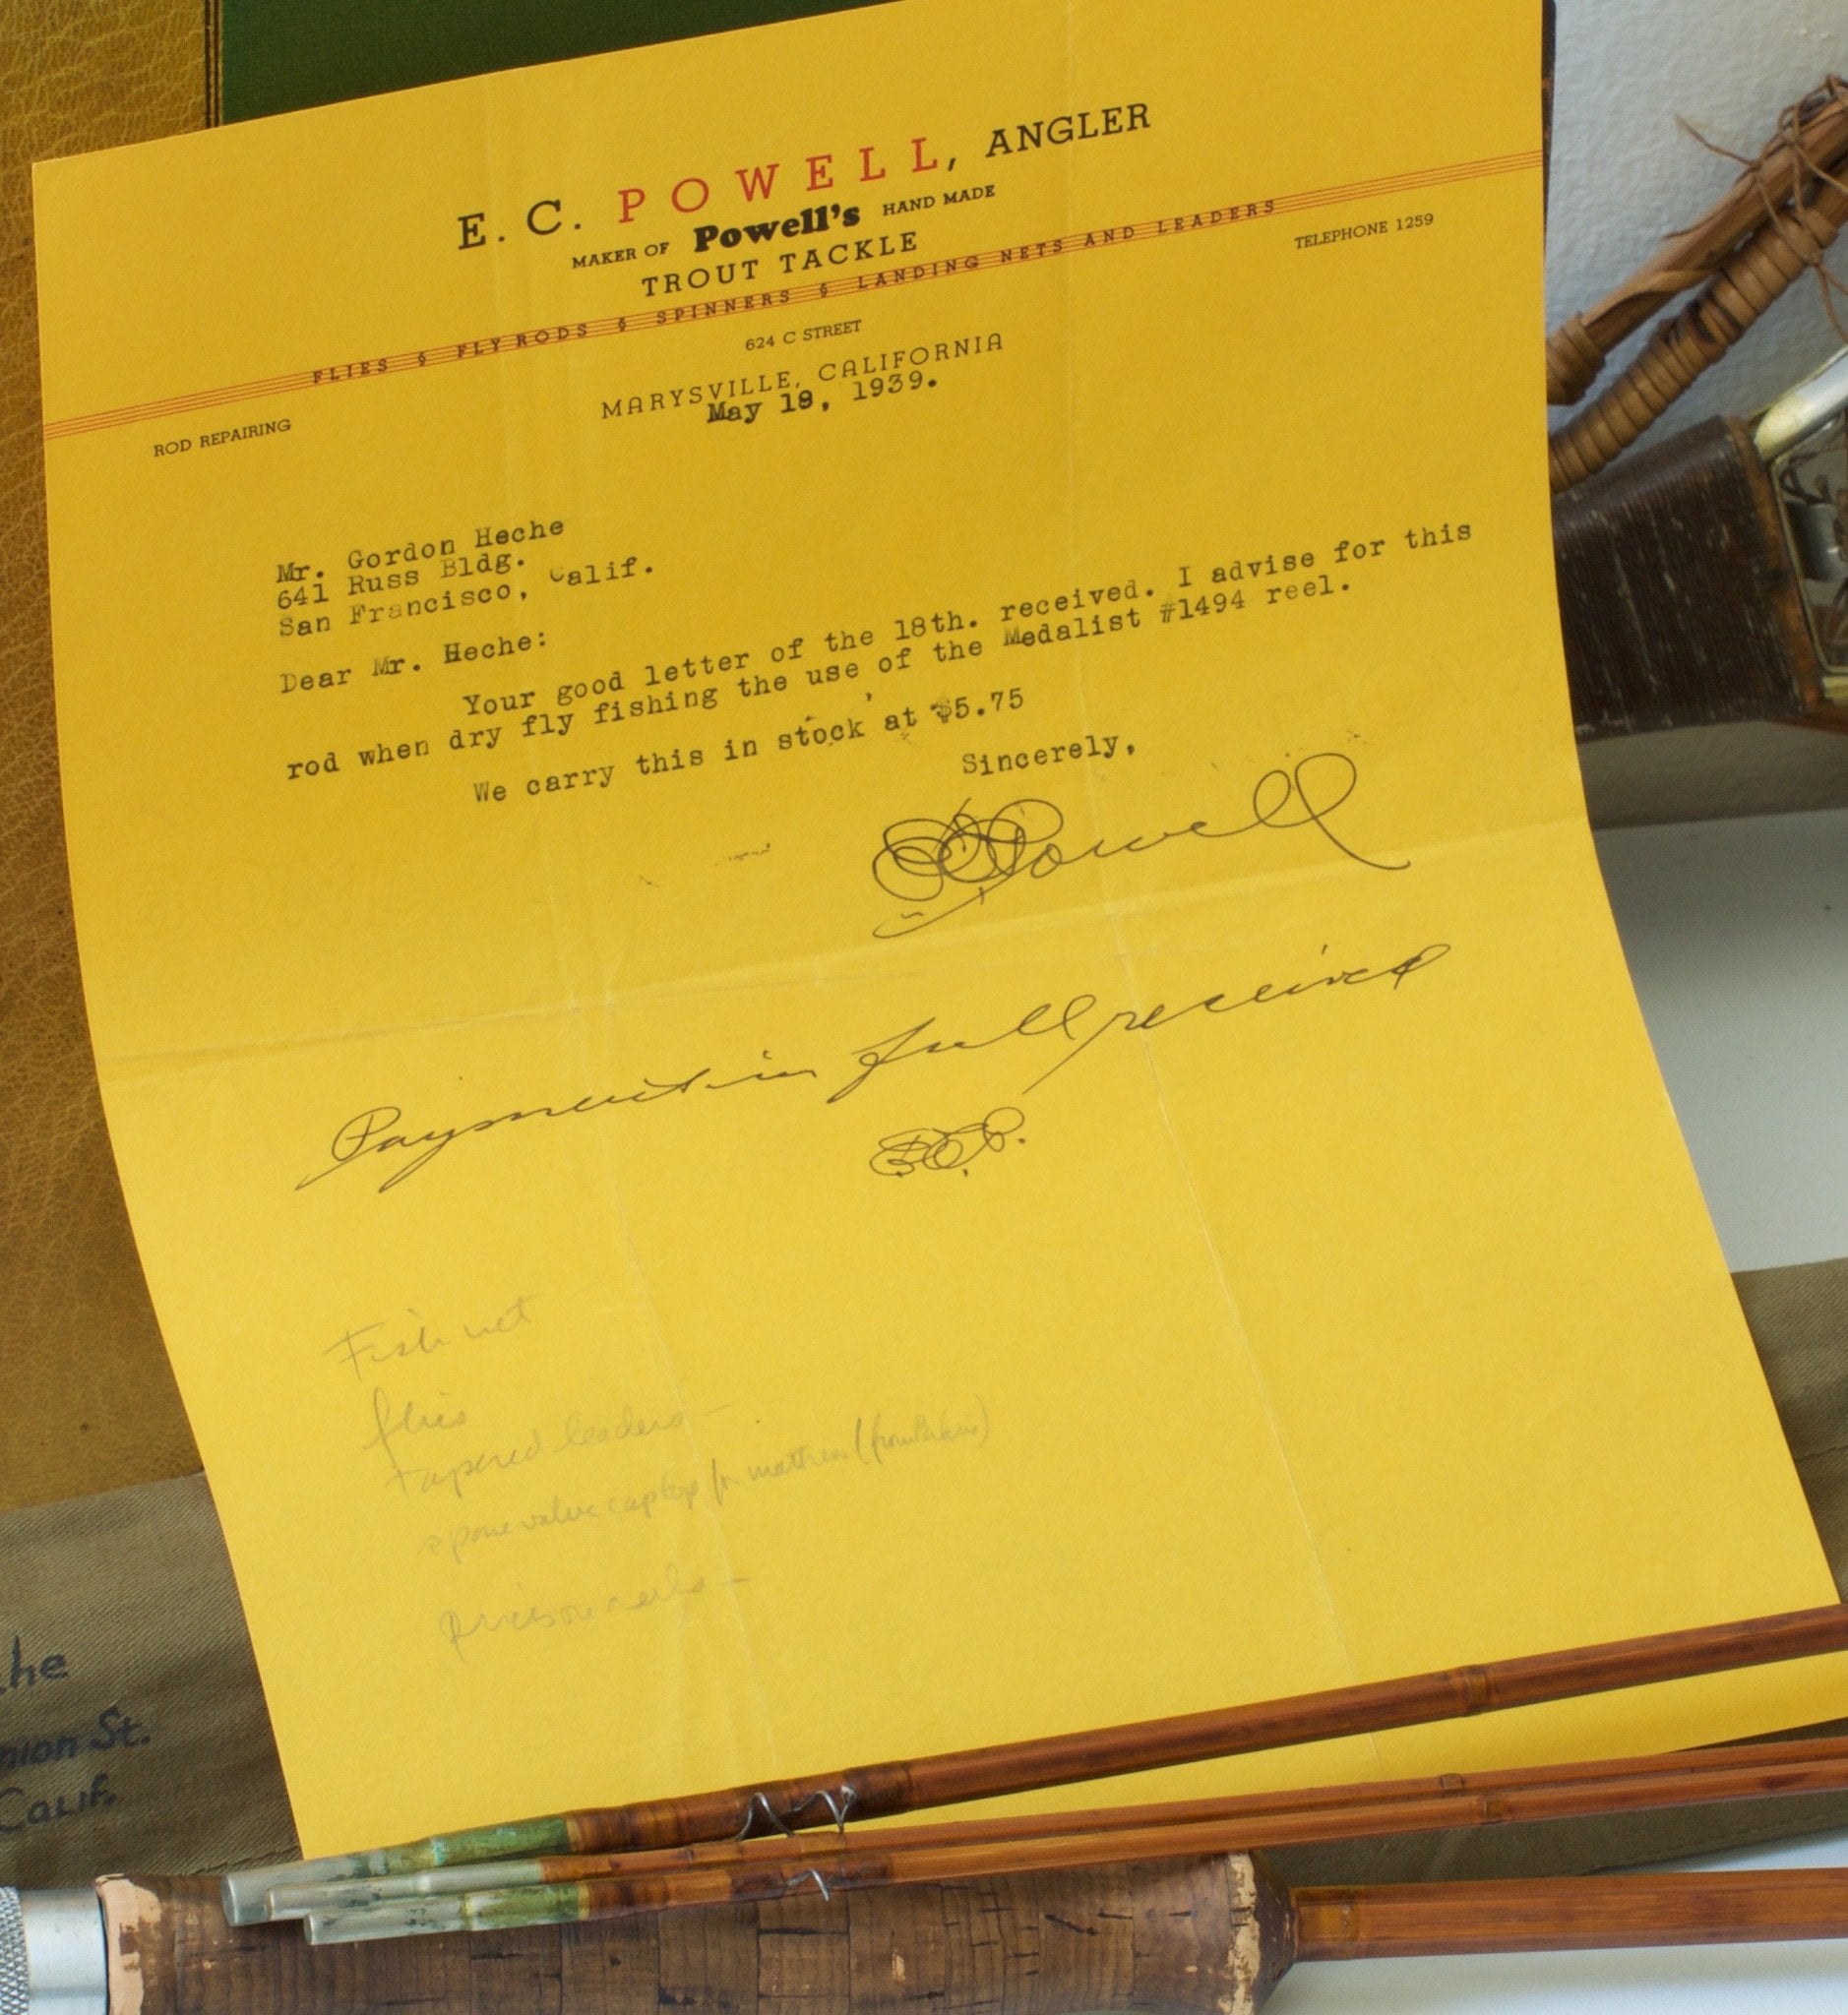 E. C. POWELL, ANGLER
MAKER OF Powell's HAND MADE
TROUT TACKLE
FLIES § FLY RODS § SPINNERS § LANDING NETS AND LEADERS
ROD REPAIRING
624 C STREET
TELEPHONE 1259
MARYSVILLE, CALIFORNIA
May 19, 1939.
Mr. Gordon Heche
641 Russ Bldg.
San Francisco, Calif.
Dear Mr. Heche:
Your good letter of the 18th. received. I advise for this
rod when dry fly fishing the use of the Medalist #1494 reel.
We carry this in stock at $5.75
Sincerely,
E C Powell
Payment in full received
E.C.P.
Fish net
flies
tapered leaders -
spare valve cap for mattress (from
he
nion St.
Calif.